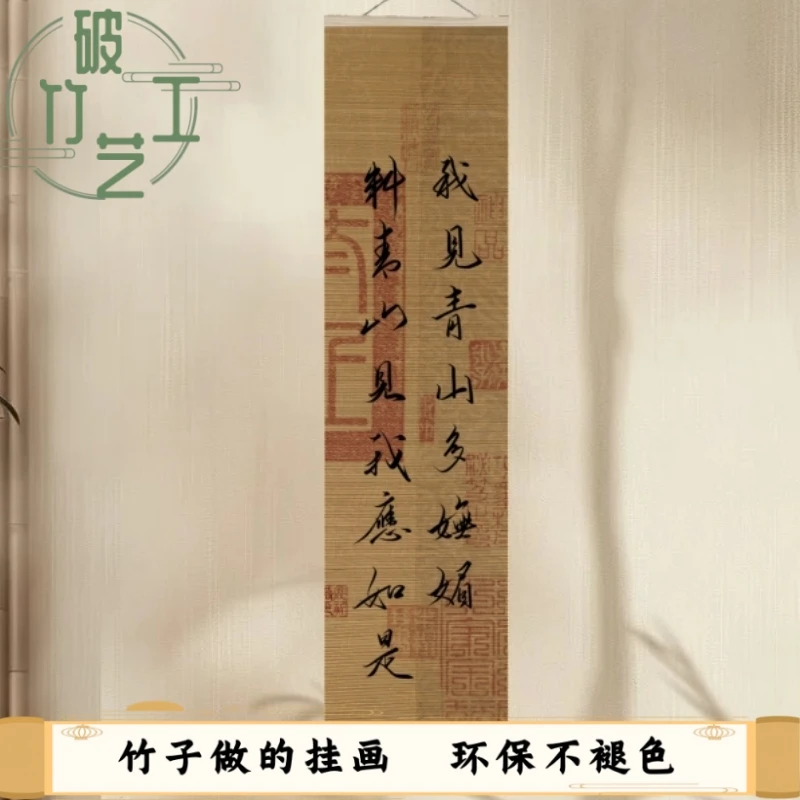 破竹工艺
我見青山多嫵媚
料青山見我應如是
竹子做的挂画 环保不褪色